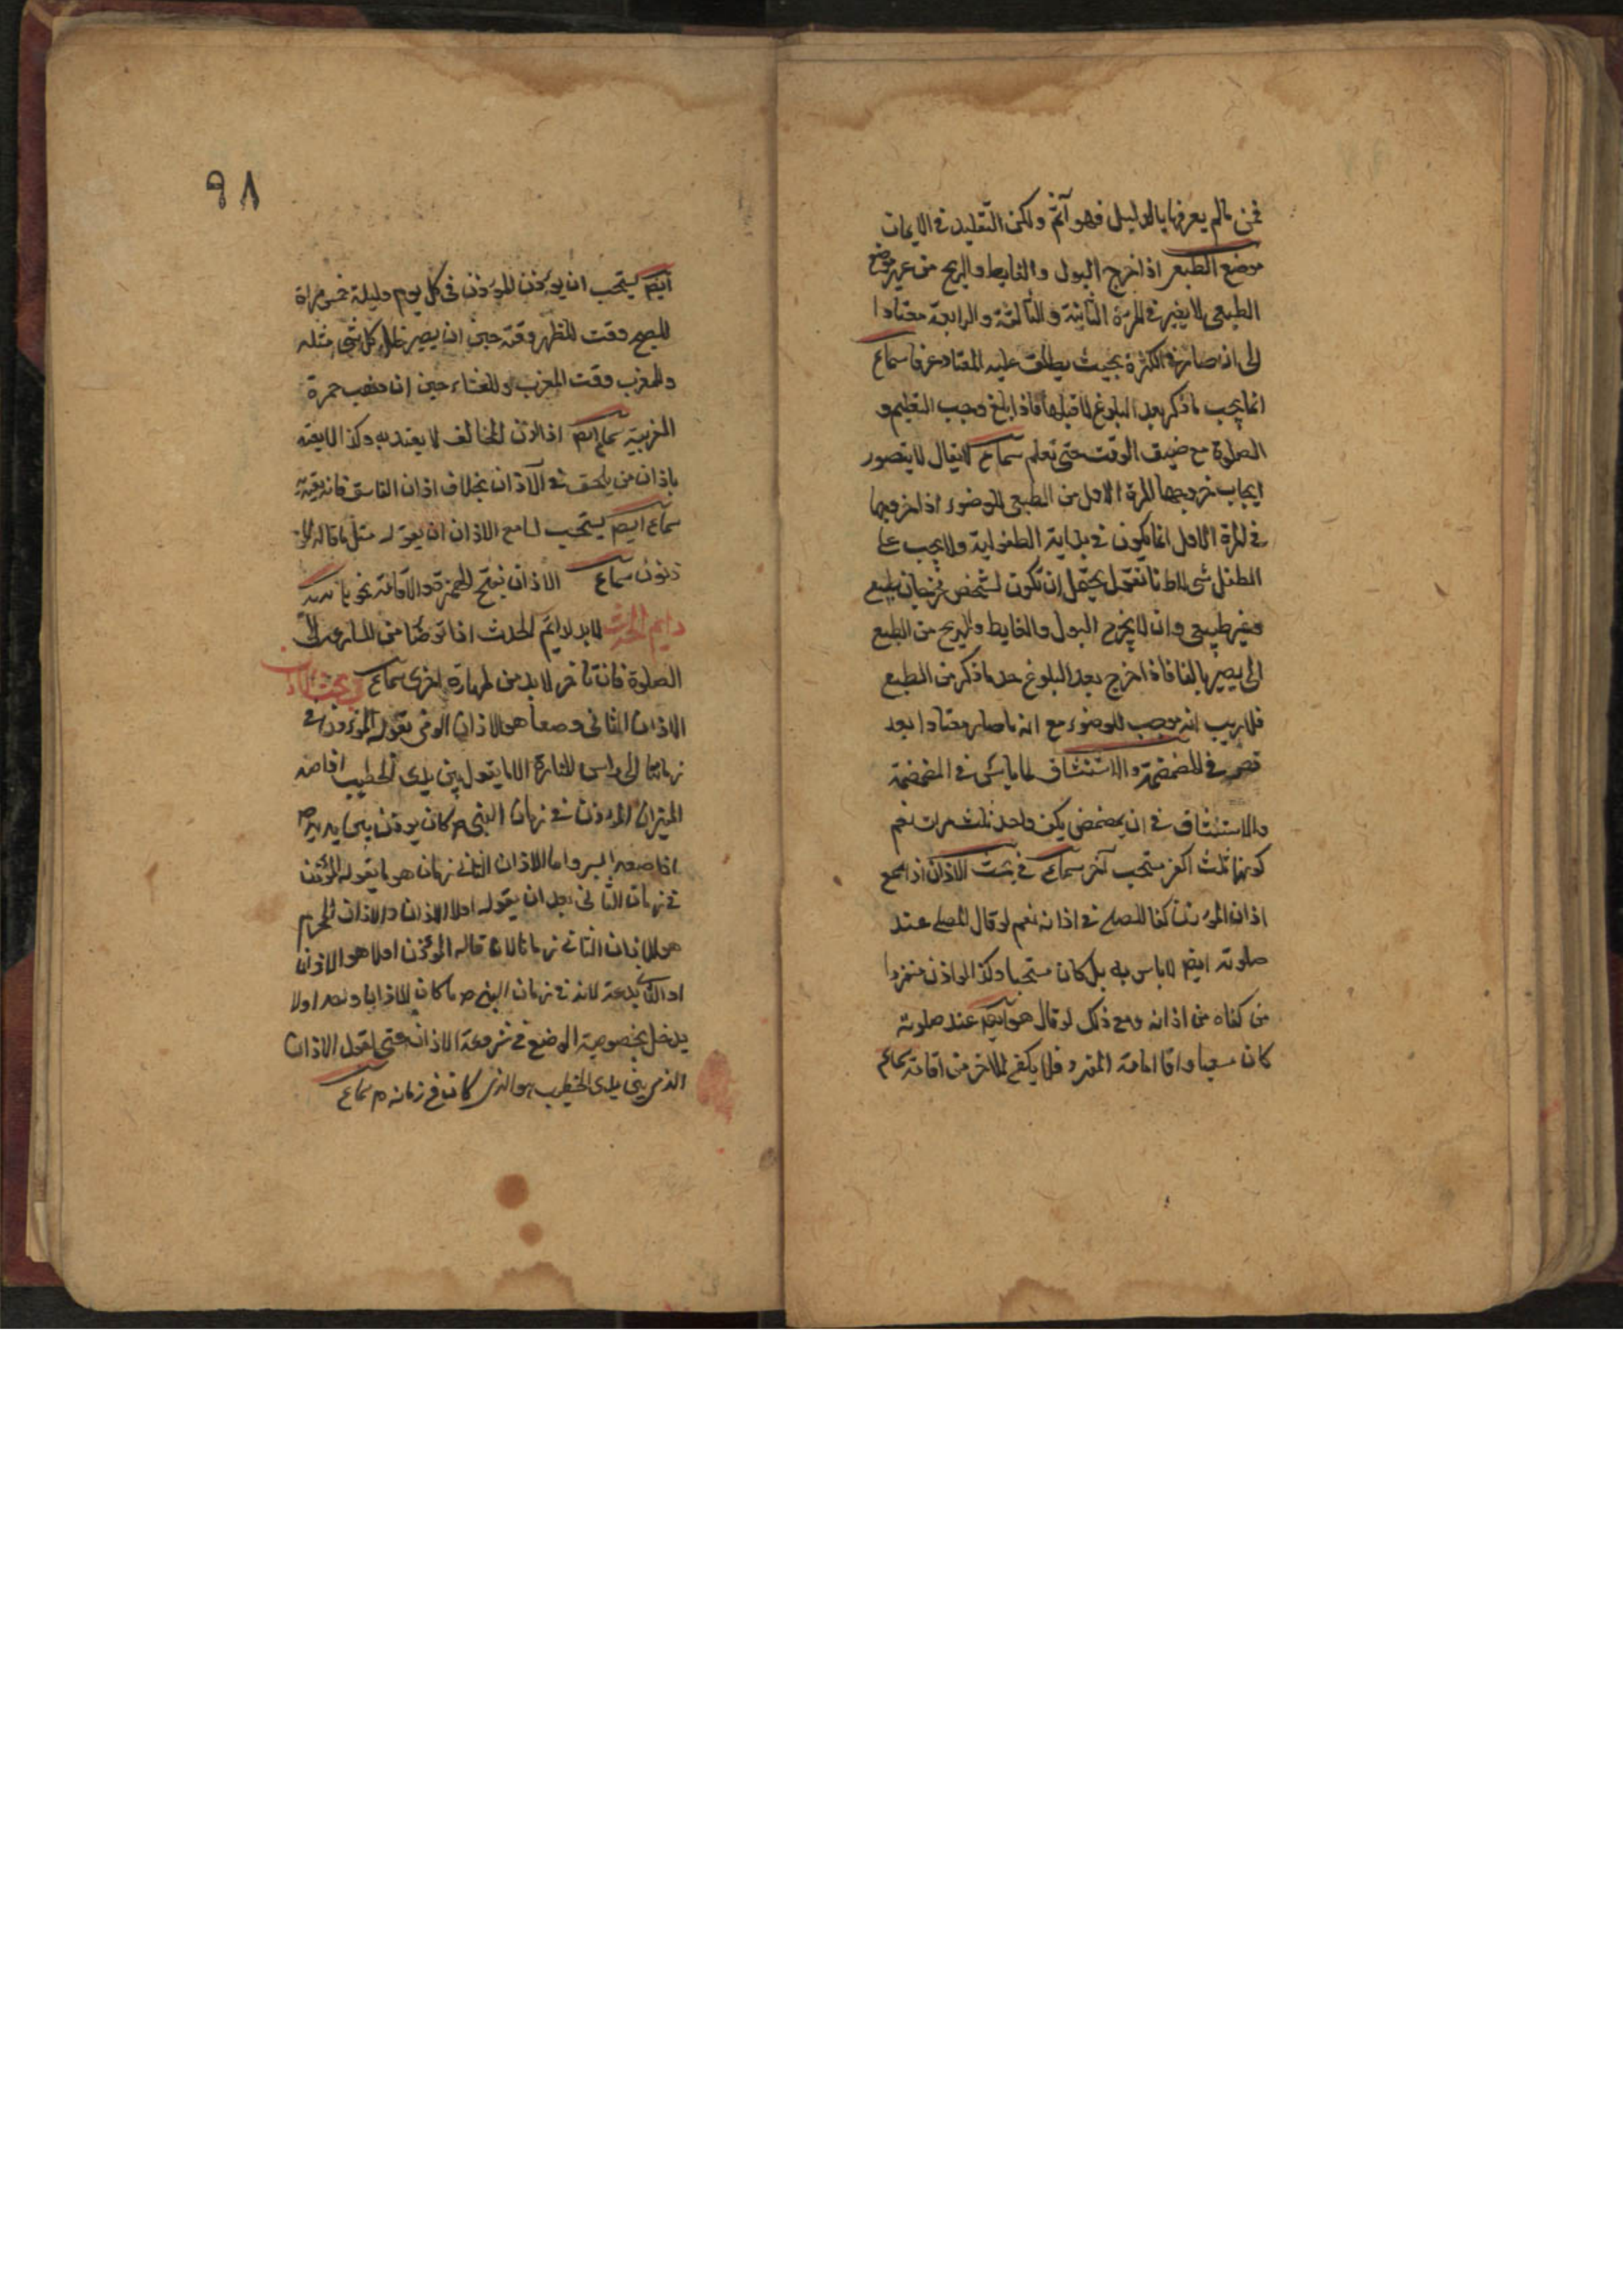 فمن مالم يعرفها بالدليل فهو آثم ولكن التقليد في الايمان
موضع الطبع اذا خرج البول والغايط والريح من غير موضع
الطبيعي لا يغير في المرة الثانية والثالثة والرابعة معتادا
الى ان صار في الكثرة بحيث يطلق عليه المعتاد عرفا سماع
انما يجب ما ذكر بعد البلوغ لا قبلها فاذا بلغ وجب التعليم و
الصلوة مع ضيق الوقت حتى تعلم سماع لا يقال لا يتصور
ايجاب خروجها المرة الاول من الطبيعي للوضوء اذ اخروجها
في المرة الاول انما يكون في بداية الطفولية ولا يجب على
الطفل شي لانا نقول يحتمل ان تكون لشخص مخرجان طبيع
وغير طبيعي وان لا يخرج البول والغايط والريح من الطبع
الى يصير بالغا فاذا خرج بعد البلوغ حد ما ذكر من الطبع
فلا ريب انه موجب للوضوء مع انه ما صار معتادا بعد
في المضمضة والاستنشاق لما ياتي في المضمضة
والاستنشاق في ان يمضمض يكن واحد ثلث مرات نعم
كونها ثلث اكف مستحب آخر سماع في بحث الاذان اذا سمع
اذان المؤذن كفا للمصلي في اذانه نعم لو قال المصلي عند
صلوته ايضا لا باس به بل كان مستحبا وكذا لو اذن منفردا
من كفاه من اذانه ومع ذلك لو قال هو ايضا عند صلوته
كان مستحبا واما اقامة المفرد فلا يكفي للاخر من اقامته سماع
٩٨
ايضا يستحب ان يؤذن المؤذن في كل يوم وليلة خمس مرات
للصبح وقت للظهر وقته حين ان يصير ظل كل شي مثله
وللمغرب وقت المغرب وللعشاء حين ان ذهب حمرة
المغربية سماع ايضا اذا لاذن المخالف لا يعتد به وكذا لا يعتد
باذان من يلحق في الاذان بخلاف اذان الفاسق فانه يعتد
سماع ايضا يستحب لسامع الاذان ان يقول مثل ما قاله المو
ذنون سماع الاذان بفتح الهمزة
دايم الحدث لا بد لدايم الحدث اذا توضا من المسارعة الى
الصلوة فان تاخر لا بد من طهارة اخرى سماع في بحث الاذان
الاذان الثاني وصفا هو الاذان الذي يقوله المؤذن في
زماننا الى راس المنارة الا ما يقول بين يدي الخطيب اذا صعد
المنبر ان المؤذن في زمان النبي ص كان يؤذن بين يديه ص
اذا صعد المنبر واما الاذان الثاني زمان هو ما يقوله المؤذن
في زمان الثاني بعد ان يقول اولا الاذان والاذان المحرم
هو الاذان الثاني زمانا لا ما قاله المؤذن اولا هو الاذان
بدعة لانه في زمان النبي ص ما كان الاذانا
يدخل بخصوصية الموضع في مشروعة الاذان حتى لقول الاذان
الذي بين يدي الخطيب هو الذي كان في زمانه م سماع